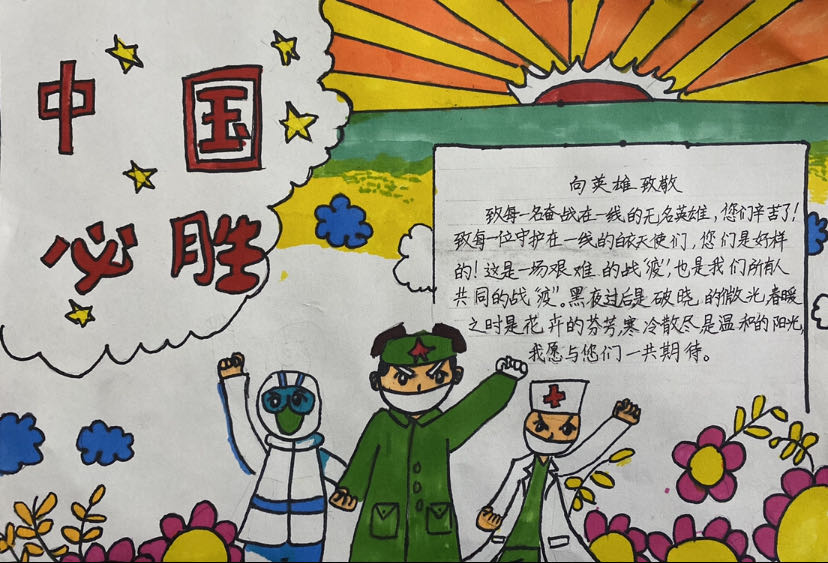 中国
必胜
向英雄致敬
致每一名奋战在一线的无名英雄，您们辛苦了！
致每一位守护在一线的白衣天使们，您们是好样
的！这是一场艰难的战“疫”，也是我们所有人
共同的战“疫”。黑夜过后是破晓的微光，春暖
之时是花卉的芬芳，寒冷散尽是温和的阳光，
我愿与你们一共期待。